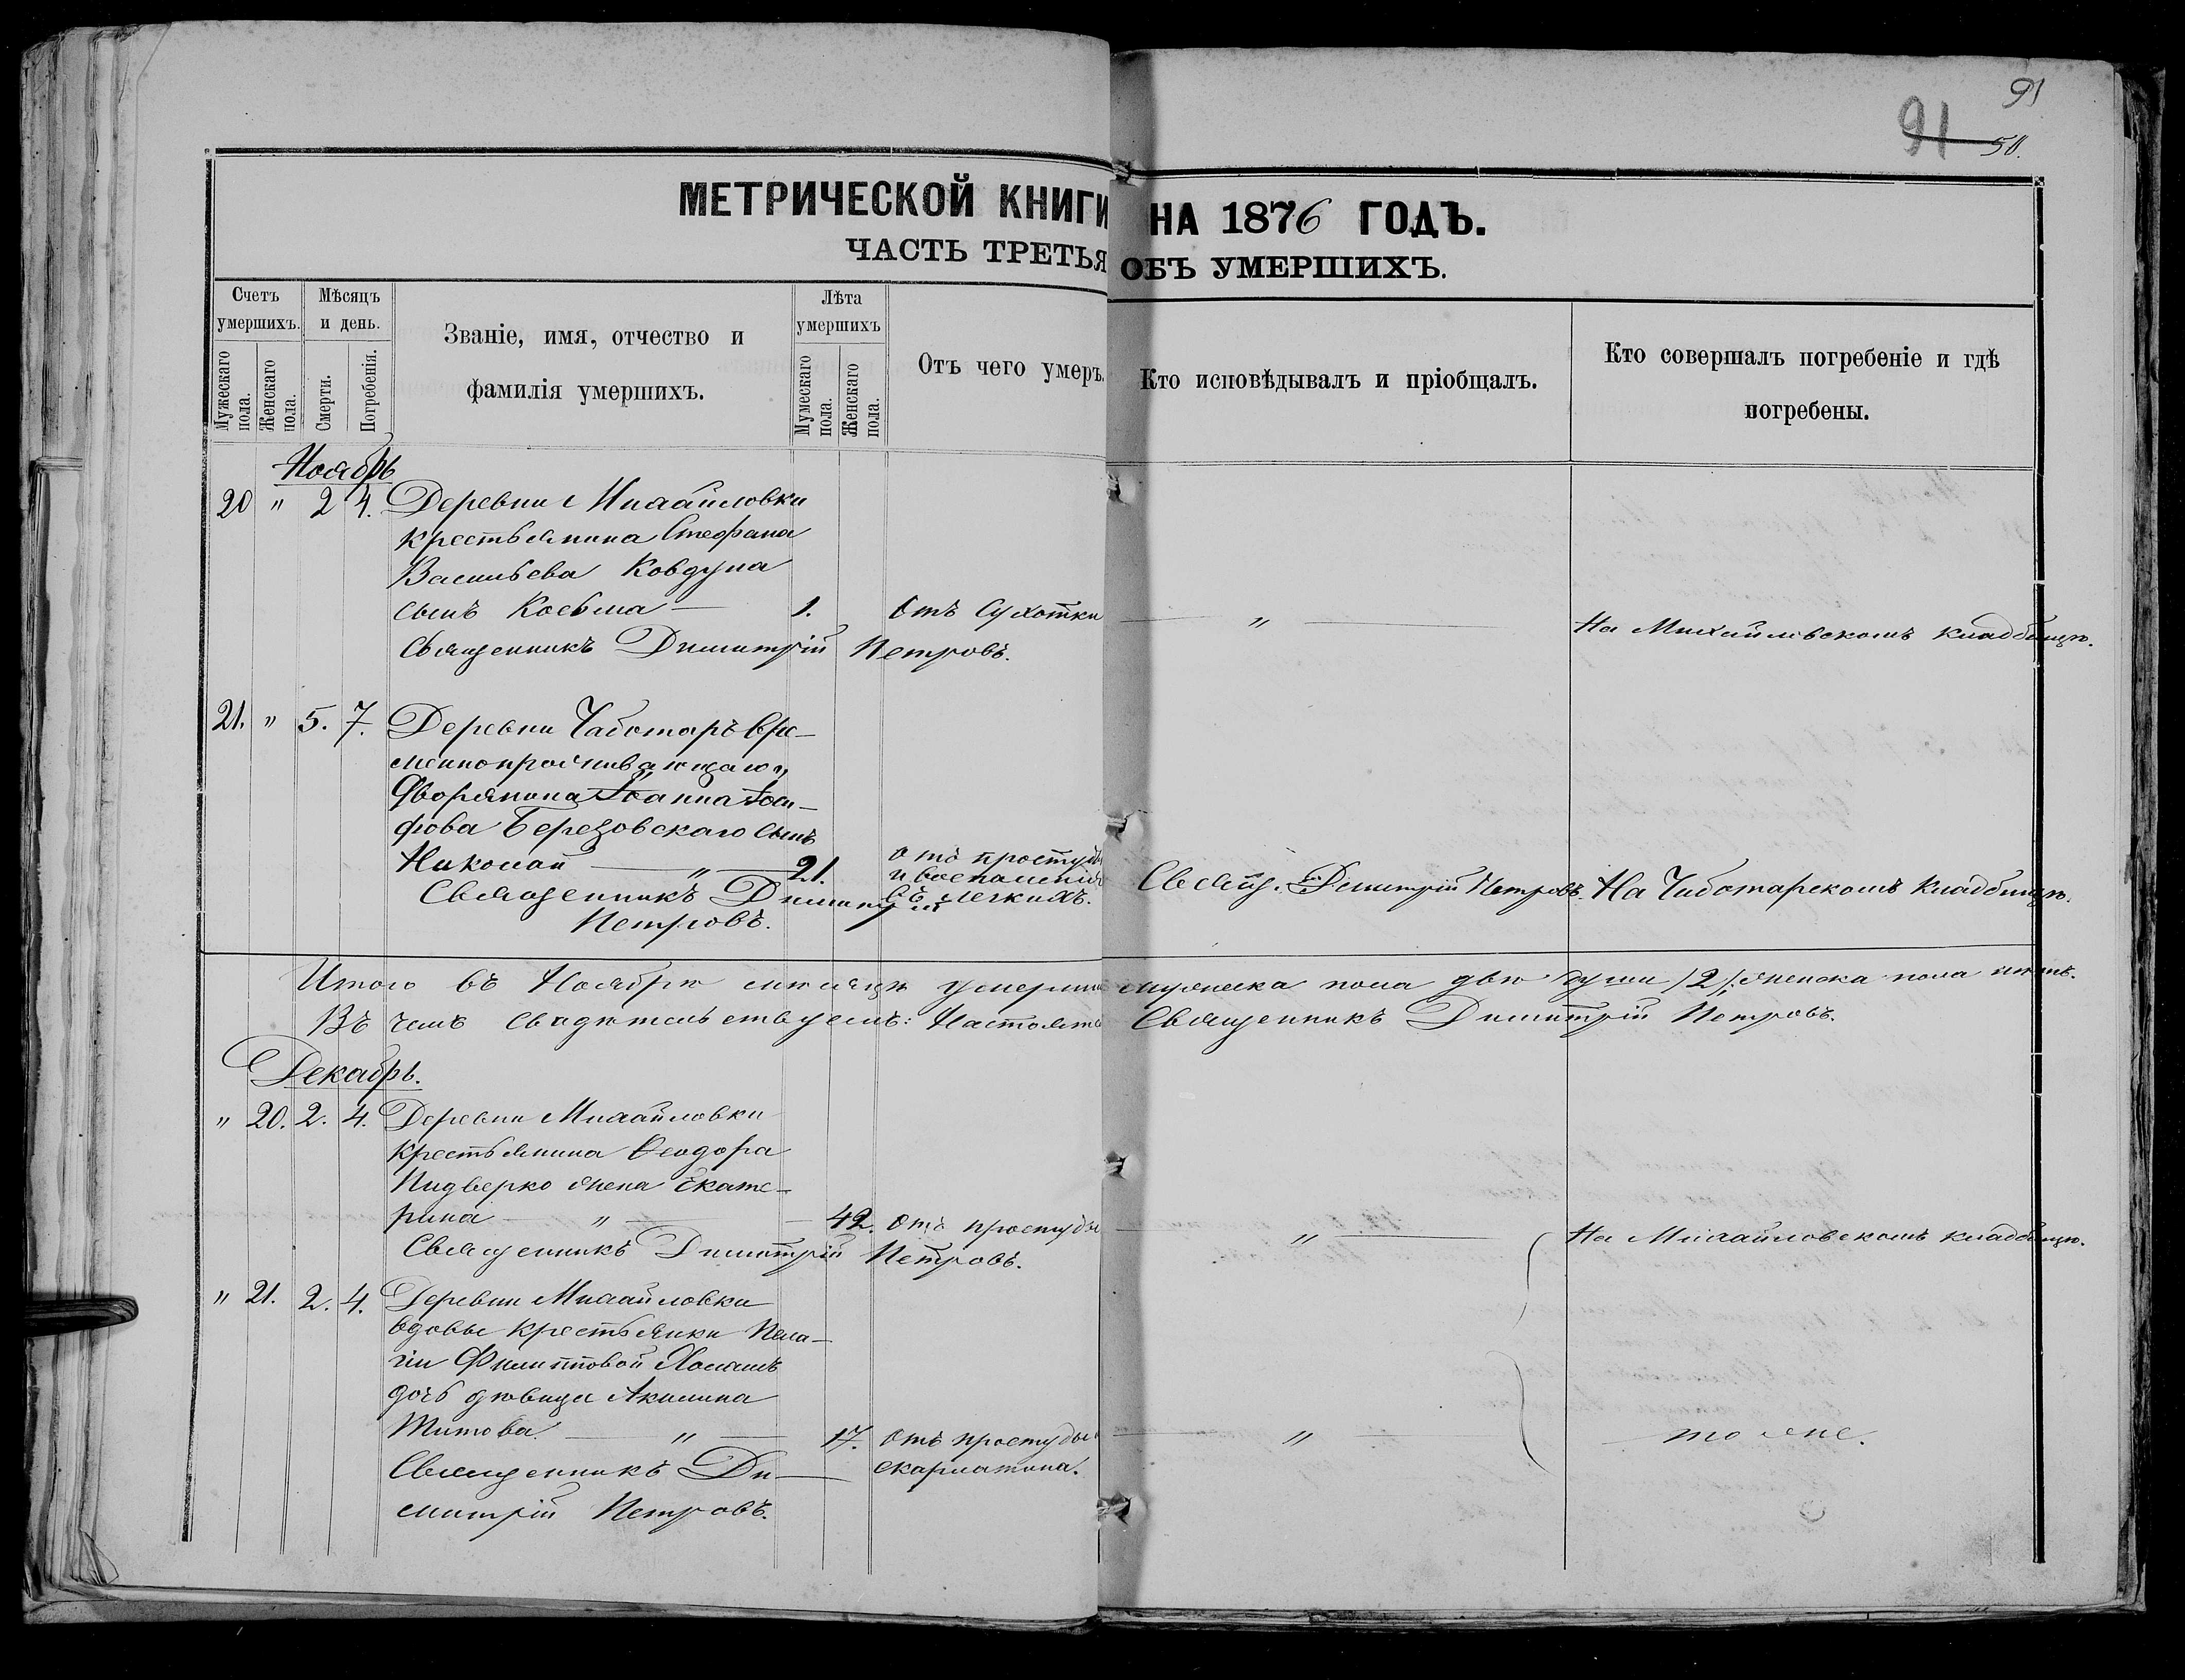 91
91 50.
МЕТРИЧЕСКОЙ КНИГИ НА 1876 ГОДЪ.
ЧАСТЬ ТРЕТЬЯ ОБЪ УМЕРШИХЪ.
Счетъ умершихъ.
Мужескаго пола.
Женскаго пола.
Мѣсяцъ и день.
Смерти.
Погребенія.
Званіе, имя, отчество и
фамилія умершихъ.
Лѣта умершихъ
Мумескаго пола.
Женскаго пола.
Отъ чего умеръ.
Кто исповѣдывалъ и пріобщалъ.
Кто совершалъ погребеніе и гдѣ
погребены.
Ноябрь
20 " 2 4. Деревни Михайловки
крестьянина Стефана
Васильева Ковдула
сынъ Косьма — 1. Отъ Сухотки — " — На Михайловскомъ кладбищѣ.
Священникъ Димитрій Петровъ.
21. " 5. 7. Деревни Чаботаръ вре-
меннопроживающаго
Дворянина Іоанна Іоси-
фова Березовскаго сынъ
Николай — " — 21. отъ простуды
и воспаленія
въ легкихъ. Свящ. Димитрій Петровъ. На Чаботарскомъ кладбищѣ.
Священникъ Димитрій
Петровъ.
Итого въ Ноябрѣ мѣсяцѣ умерло мужеска пола двѣ души /2/. женска пола нѣтъ.
Въ чемъ свидѣтельствуемъ: Настоятель Священникъ Димитрій Петровъ.
Декабрь.
" 20. 2. 4. Деревни Михайловки
крестьянина Ѳеодора
Пидверко жена Екате-
рина — " — 42. Отъ простуды — " — На Михайловскомъ кладбищѣ.
Священникъ Димитрій Петровъ.
" 21. 2. 4. Деревни Михайловки
вдовы крестьянки Пела-
гіи Филипповой
дочь дѣвица Акилина
Титова. — " — 17. Отъ простуды — " — тоже.
скарлатина.
Священникъ Ди-
митрій Петровъ.